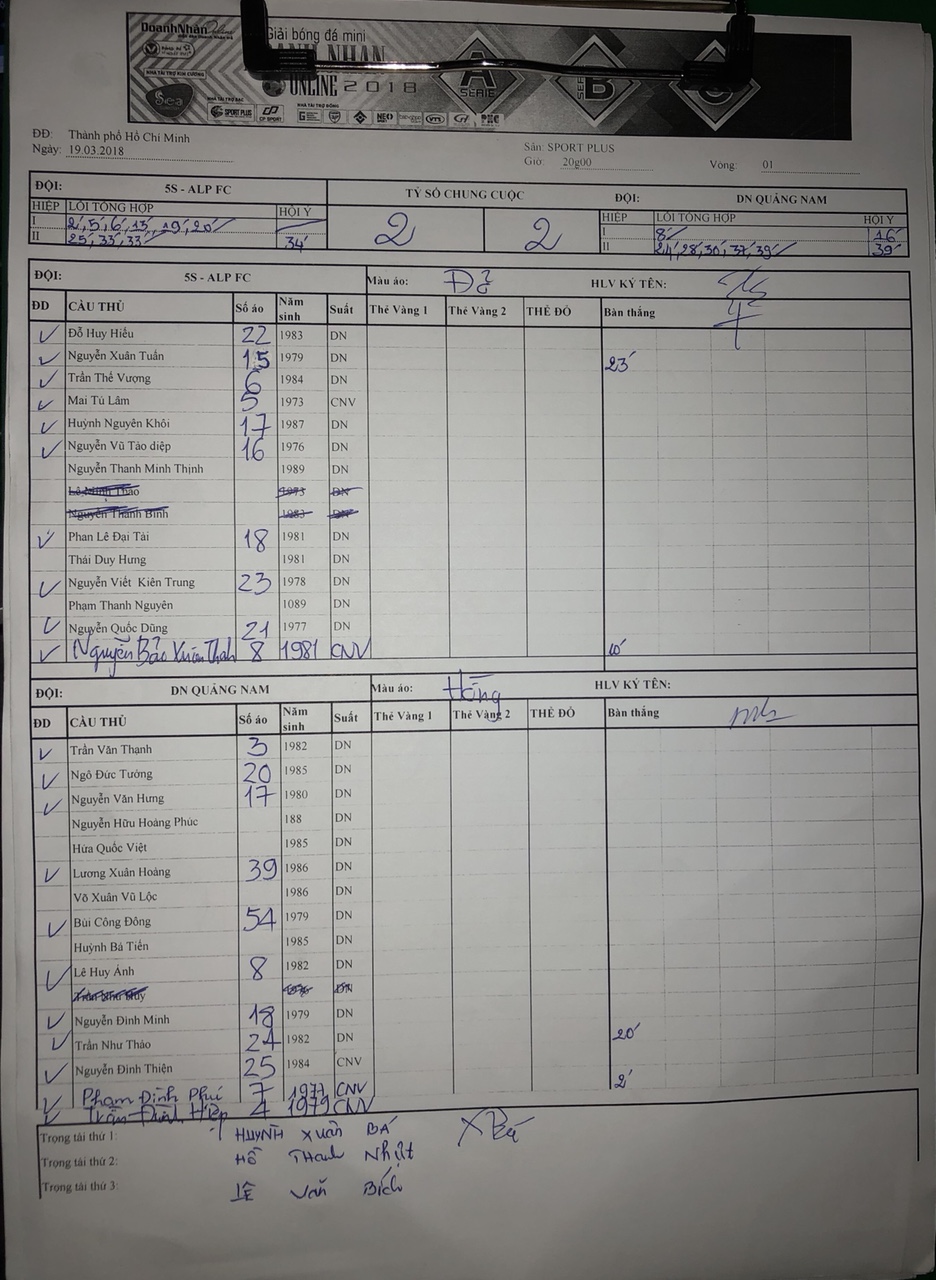 DoanhNhân Online
Giải bóng đá mini
NHÂN
ONLINE 2018
NHÀ TÀI TRỢ KIM CƯƠNG
Sea
NHÀ TÀI TRỢ BẠC
SPORT PLUS CP SPORT
NHÀ TÀI TRỢ ĐỒNG
NEO
A SERIE
B SERIE
ĐĐ: Thành phố Hồ Chí Minh
Ngày: 19.03.2018
Sân: SPORT PLUS
Giờ: 20g00 Vòng: 01
ĐỘI: 5S - ALP FC TỶ SỐ CHUNG CUỘC ĐỘI: DN QUẢNG NAM
HIỆP LỖI TỔNG HỢP HỘI Ý 2 2 HIỆP LỖI TỔNG HỢP HỘI Ý
I 2', 5', 6', 13', 19', 20' I 8' 16'
II 25', 33', 33' 34' II 24', 28', 30', 37', 39' 39'
ĐỘI: 5S - ALP FC Màu áo: Đỏ HLV KÝ TÊN:
ĐD CẦU THỦ Số áo Năm sinh Suất Thẻ Vàng 1 Thẻ Vàng 2 THẺ ĐỎ Bàn thắng
Đỗ Huy Hiếu 22 1983 DN
Nguyễn Xuân Tuấn 15 1979 DN 23'
Trần Thế Vượng 6 1984 DN
Mai Tú Lâm 5 1973 CNV
Huỳnh Nguyên Khôi 17 1987 DN
Nguyễn Vũ Tảo diệp 16 1976 DN
Nguyễn Thanh Minh Thịnh 1989 DN
1973 DN
Nguyễn Thanh Bình 1983 DN
Phan Lê Đại Tài 18 1981 DN
Thái Duy Hưng 1981 DN
Nguyễn Viết Kiên Trung 23 1978 DN
Phạm Thanh Nguyên 1089 DN
Nguyễn Quốc Dũng 21 1977 DN
Nguyễn Bảo Xuân Thah 8 1981 CNV 10'
ĐỘI: DN QUẢNG NAM Màu áo: Hồng HLV KÝ TÊN:
ĐD CẦU THỦ Số áo Năm sinh Suất Thẻ Vàng 1 Thẻ Vàng 2 THẺ ĐỎ Bàn thắng
Trần Văn Thạnh 3 1982 DN
Ngô Đức Tướng 20 1985 DN
Nguyễn Văn Hưng 17 1980 DN
Nguyễn Hữu Hoàng Phúc 188 DN
Hứa Quốc Việt 1985 DN
Lương Xuân Hoàng 39 1986 DN
Võ Xuân Vũ Lộc 1986 DN
Bùi Công Đông 54 1979 DN
Huỳnh Bá Tiền 1985 DN
Lê Huy Ánh 8 1982 DN
DN
Nguyễn Đình Minh 18 1979 DN
Trần Như Thảo 24 1982 DN 20'
Nguyễn Đình Thiện 25 1984 CNV 2'
Phạm Đình Phú 7 1977 CNV
Trần Đình Hiệp 4 1979 CNV
Trọng tài thứ 1: HUỲNH Xuân BÁ XBá
Trọng tài thứ 2: HỒ Thanh Nhựt
Trọng tài thứ 3: LÊ Văn Bích